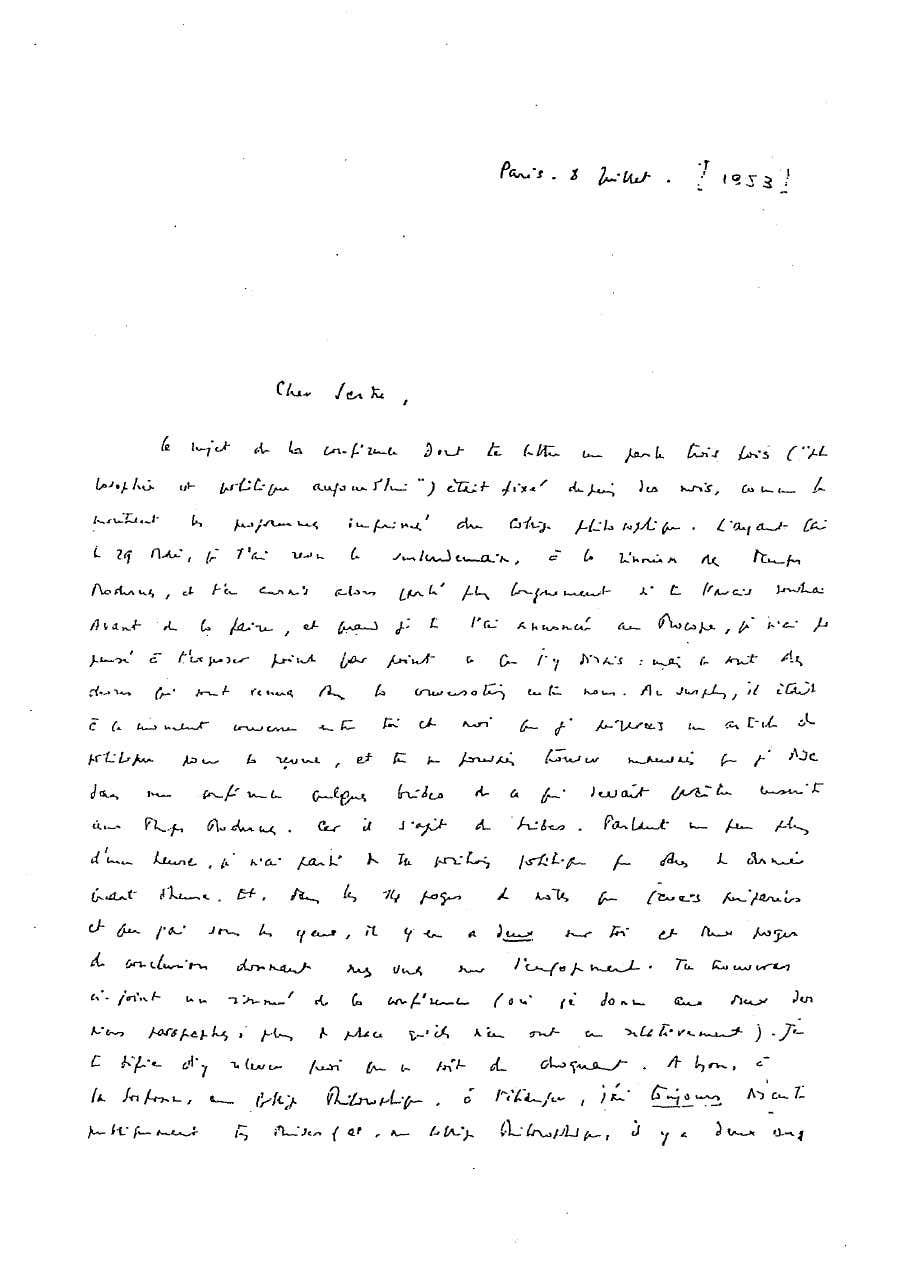 Paris. 8 Juillet. [1953]
Cher Sartre,
Le sujet de la conférence dont ta lettre me parle trois fois ("Phi
losophie et politique aujourd'hui") était fixé depuis des mois, comme le
montrent les programmes imprimés du Collège philosophique. L'ayant fai
le 29 Mai, je t'ai revu le surlendemain, à la réunion des Temps
Modernes, et t'en aurais alors parlé plus longuement si tu l'avais souhai
Avant de la faire, et quand je te l'ai annoncée au Procope, je n'ai pas
pensé à t'exposer point par point ce que j'y dirais : mais ce sont des
choses qui sont venues dans la conversation entre nous. Au surplus, il était
à ce moment convenu entre toi et moi que je préparais un article de
politique pour la revue, et tu ne pouvais trouver mauvais que je dise
dans une conférence quelques bribes de ce qui devait paraître ensuite
aux Temps Modernes. Car il s'agit de bribes. Parlant un peu plus
d'une heure, je n'ai parlé de ta position politique que dans le dernier
quart d'heure. Et, dans les 14 pages de notes que j'avais préparées
et que j'ai sous les yeux, il y en a deux sur toi et deux pages
de conclusion donnant mes vues sur l'engagement. Tu trouveras
ci-joint un résumé de la conférence (où je donne aux deux der
niers paragraphes plus de place qu'ils n'en ont eu relativement). Je
te défie d'y relever quoi que ce soit de choquant. A Lyon, à
la Sorbonne, au Collège Philosophique, à l'étranger, j'ai toujours discuté
publiquement tes thèses (et, au Collège Philosophique, il y a deux ans